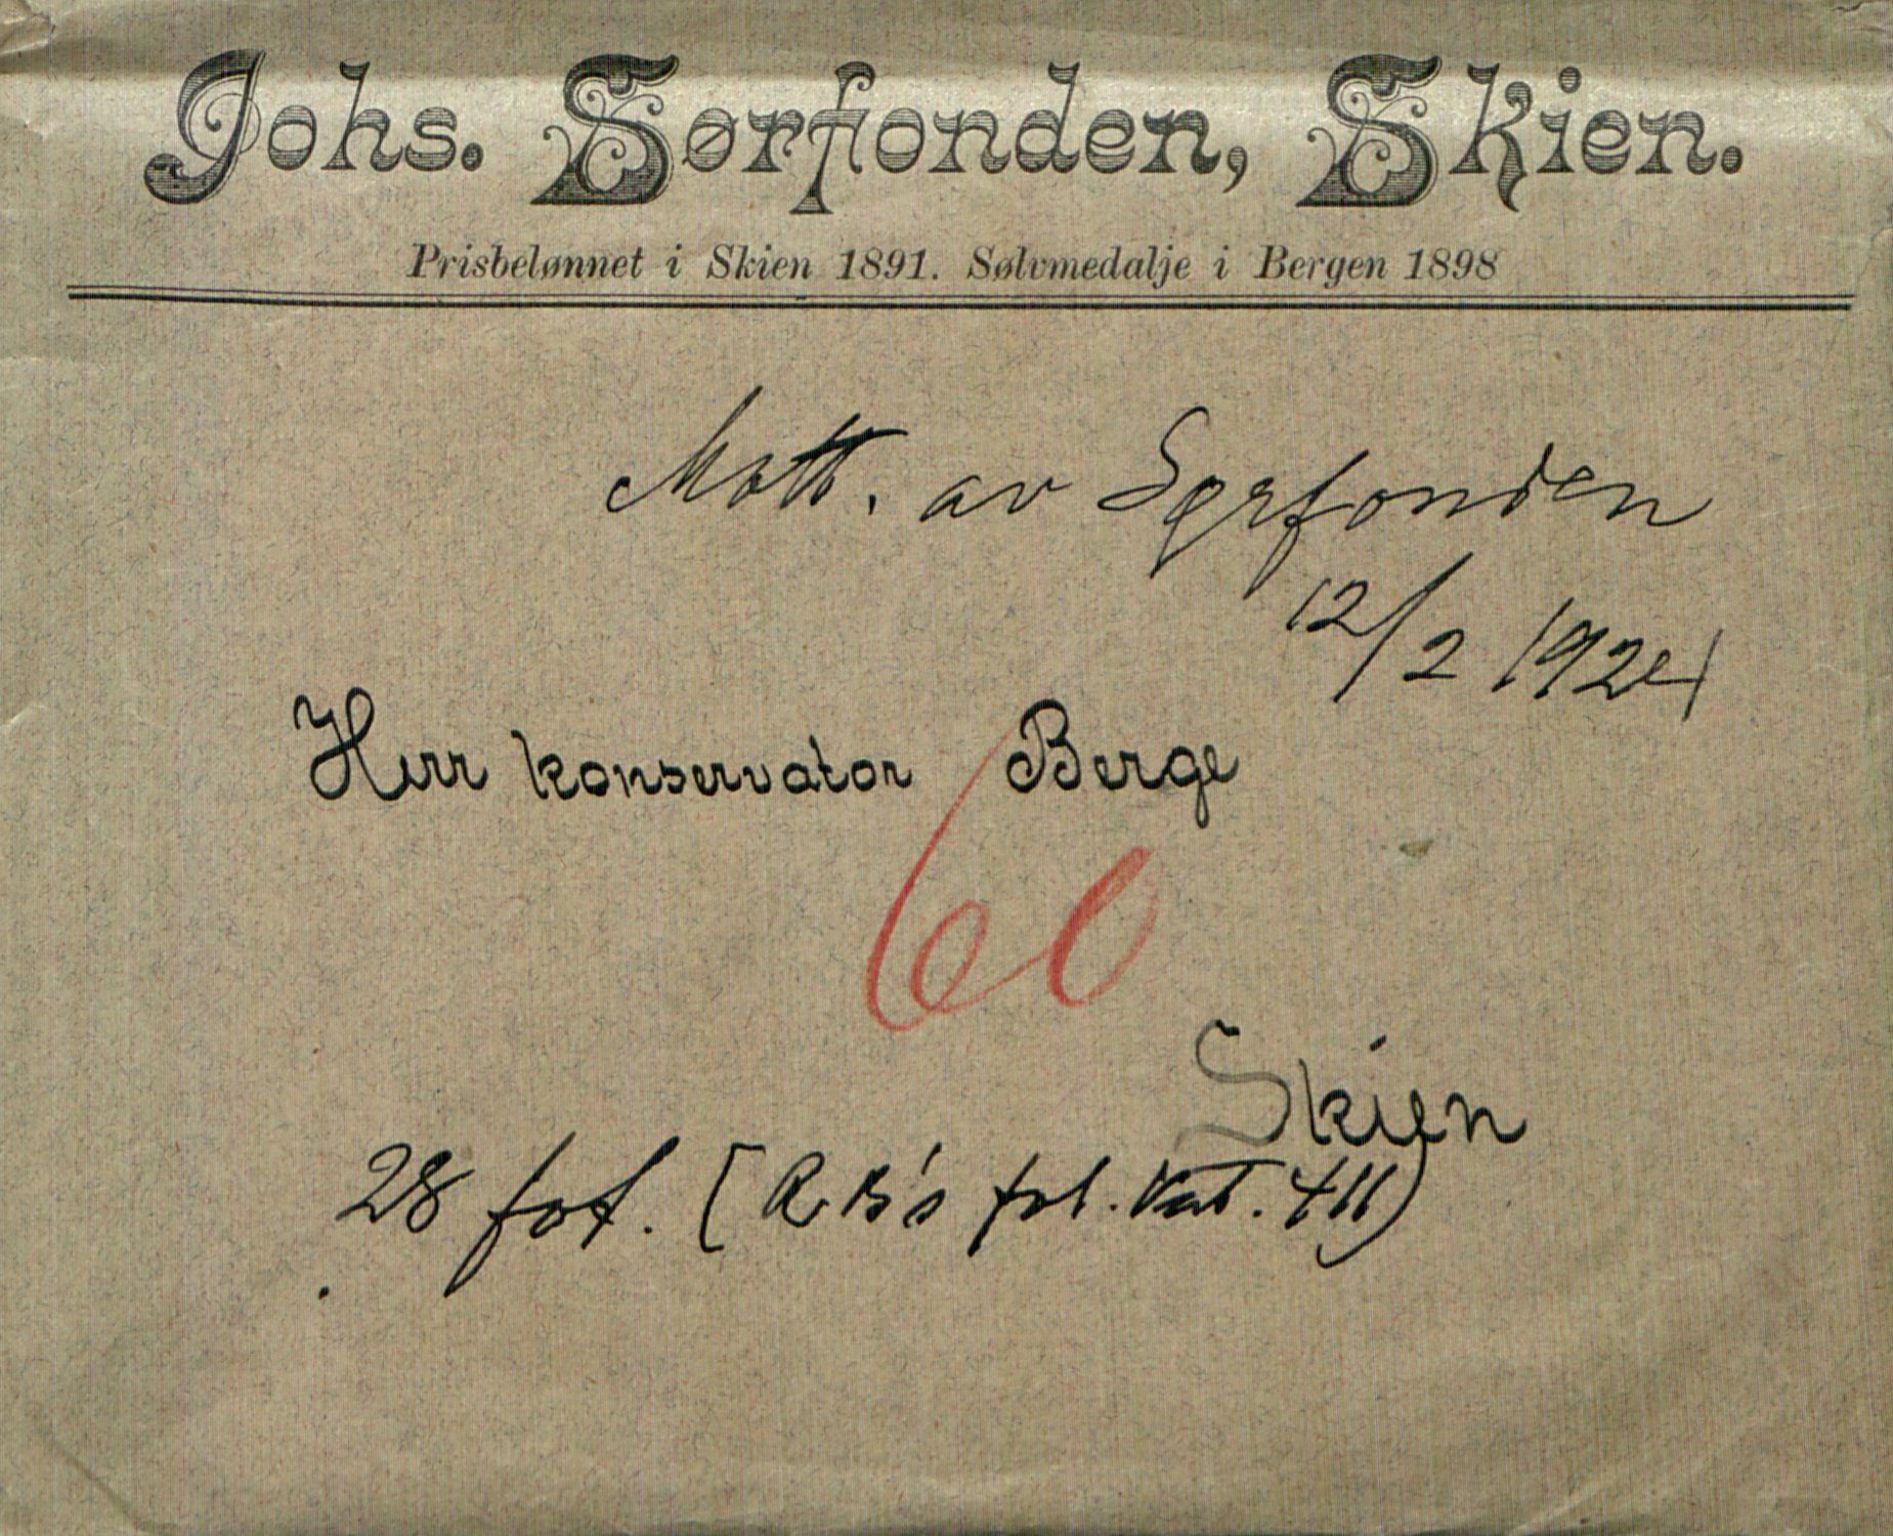 Johs. Sørfonden, Skien.
Prisbelønnet i Skien 1891. Sølvmedalje i Bergen 1898
Mott. av Sørfonden
12/2 1924
Herr konservator Berge
60
Skien
28 fot. (RB's fot. Kat. 411)